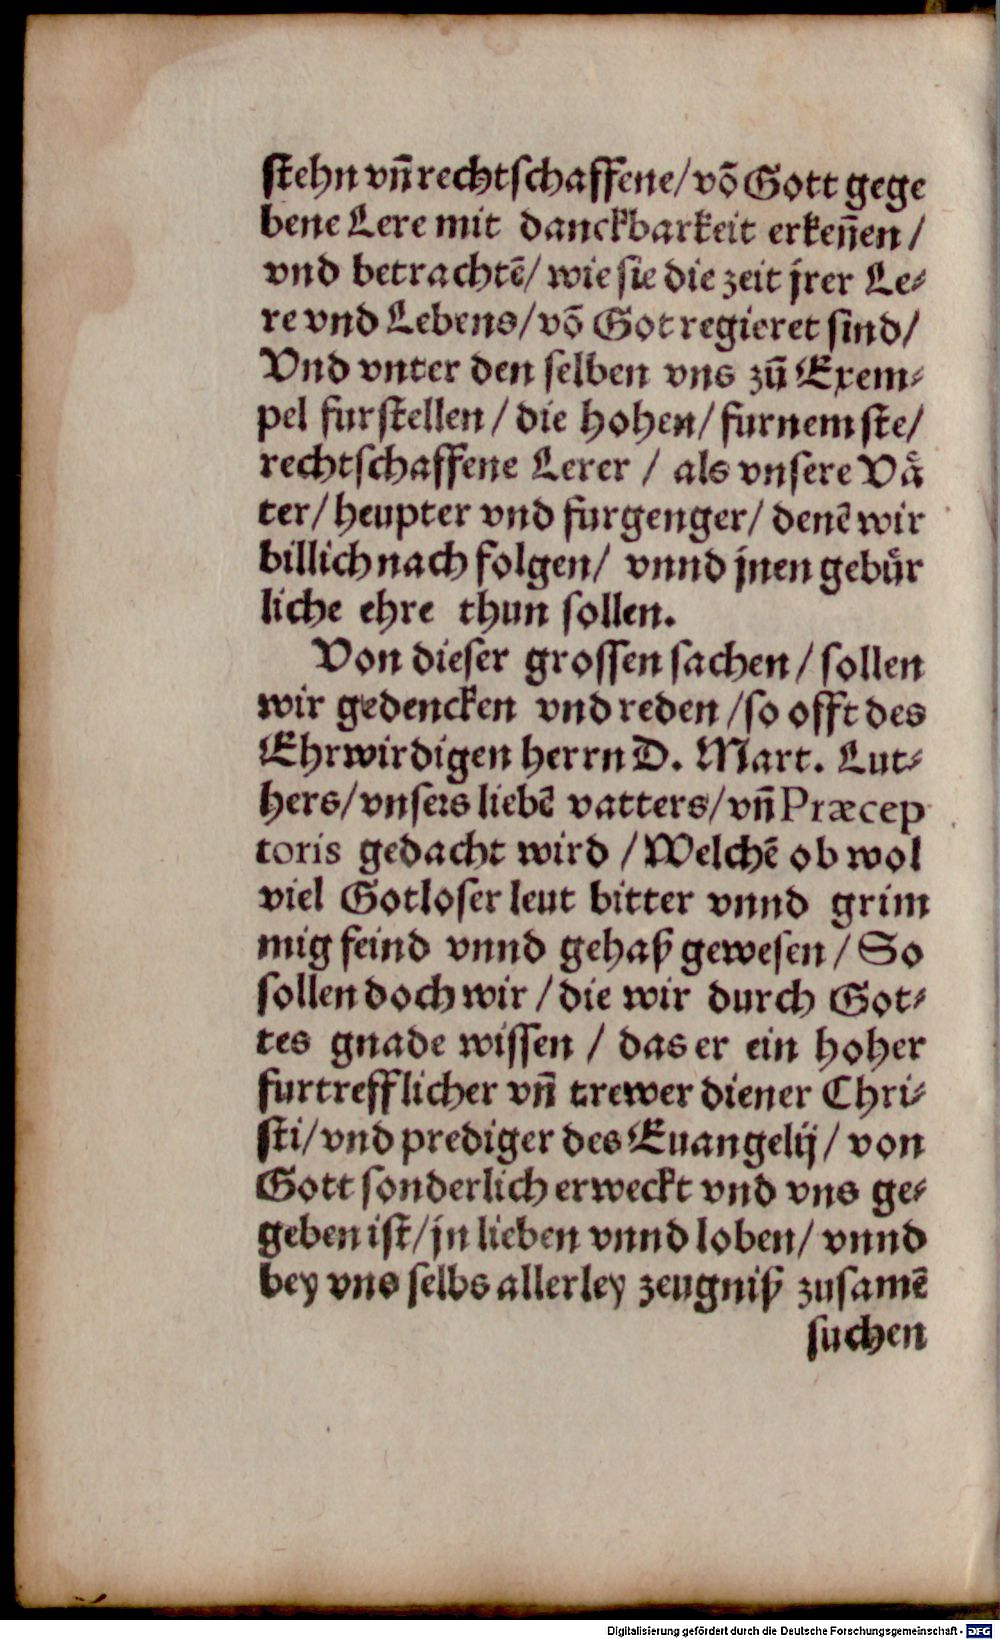 ſtehn vn̄ rechtſchaffene/ vō Gott gege
bene Lere mit danckbarkeit erkeñen /
vnd betrachtē/ wie ſie die zeit jrer Le⸗
re vnd Lebens/ vō Got regieret ſind/
Vnd vnter den ſelben vns zū Exem⸗
pel furſtellen / die hohen/ furnemſte/
rechtſchaffene Lerer / als vnſere Vaͤ
ter/ heupter vnd furgenger/ denē wir
billich nach folgen/ vnnd jnen gebuͤr
liche ehre thun ſollen.
Von dieſer groſſen ſachen / ſollen
wir gedencken vnd reden /ſo offt des
Ehrwirdigen herrn D. Mart. Lut⸗
hers/ vnſers liebē vatters/ vn̄ Præcep
toris gedacht wird / Welchē ob wol
viel Gotloſer leut bitter vnnd grim
mig feind vnnd gehaß geweſen / So
ſollen doch wir / die wir durch Got⸗
tes gnade wiſſen / das er ein hoher
furtrefflicher vn̄ trewer diener Chri⸗
ſti/ vnd prediger des Euangelij/ von
Gott ſonderlich erweckt vnd vns ge⸗
geben iſt/ jn lieben vnnd loben/ vnnd
bey vns ſelbs allerley zeugniß zuſamē
ſuchen
Digitalisierung gefördert durch die Deutsche Forschungsgemeinschaft - DFG